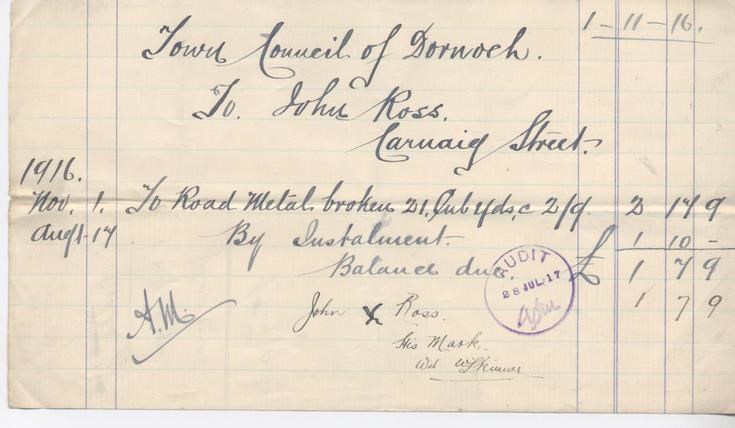 1-11-16.
Town Council of Dornoch.
To. John Ross.
Carnaig Street.
1916.
Nov. 1. To Road Metal broken 21, Cub Yds, c 2/9. 2 17 9
Augt 17 By Instalment. 1 10 -
Balance due. £ 1 7 9
1 7 9
AUDIT
28 JUL. 17
A.M.
John X Ross.
His Mark.
Wit W Skinner